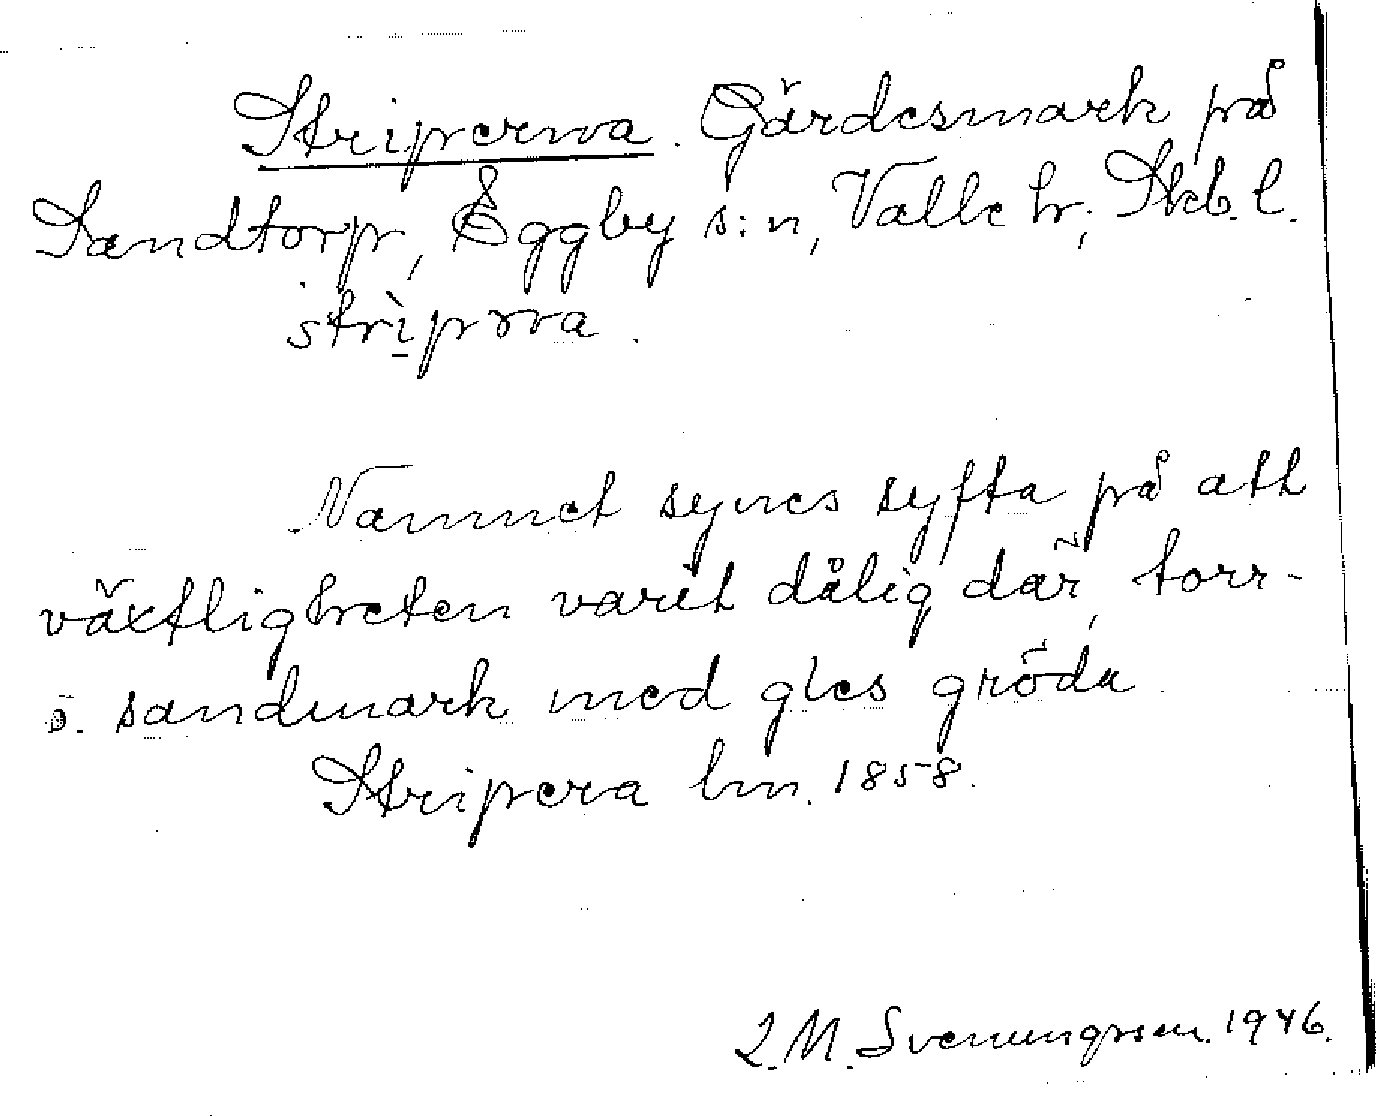 Striperna. Gärdesmark på
Sandtorp, Eggby s:n, Valle hr, Skb. l.
strìp
Namnet synes syfta på att
växtligheten varit dålig där, torr-
o. sandmark med gles gröda
Stripera lm. 1858.
L. M. Svenungsson. 1946.